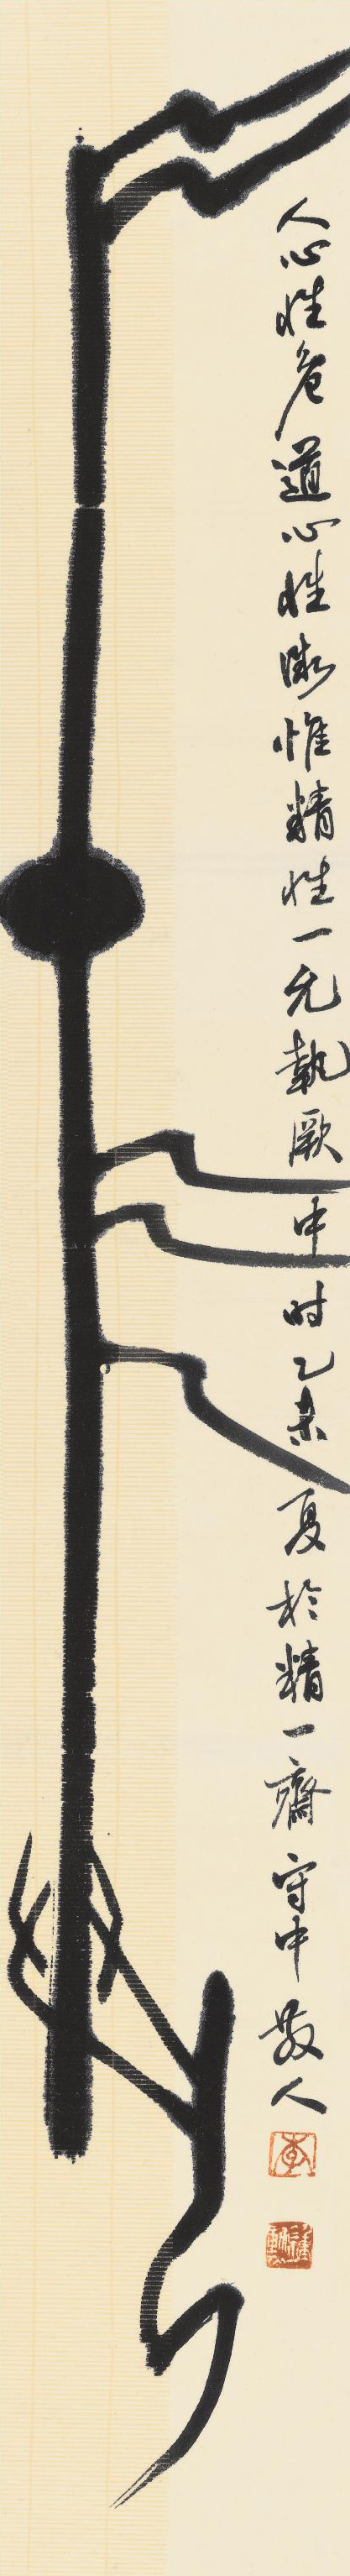 人心惟危道心惟微惟精惟一允執厥中时乙未夏於精一齋守中散人